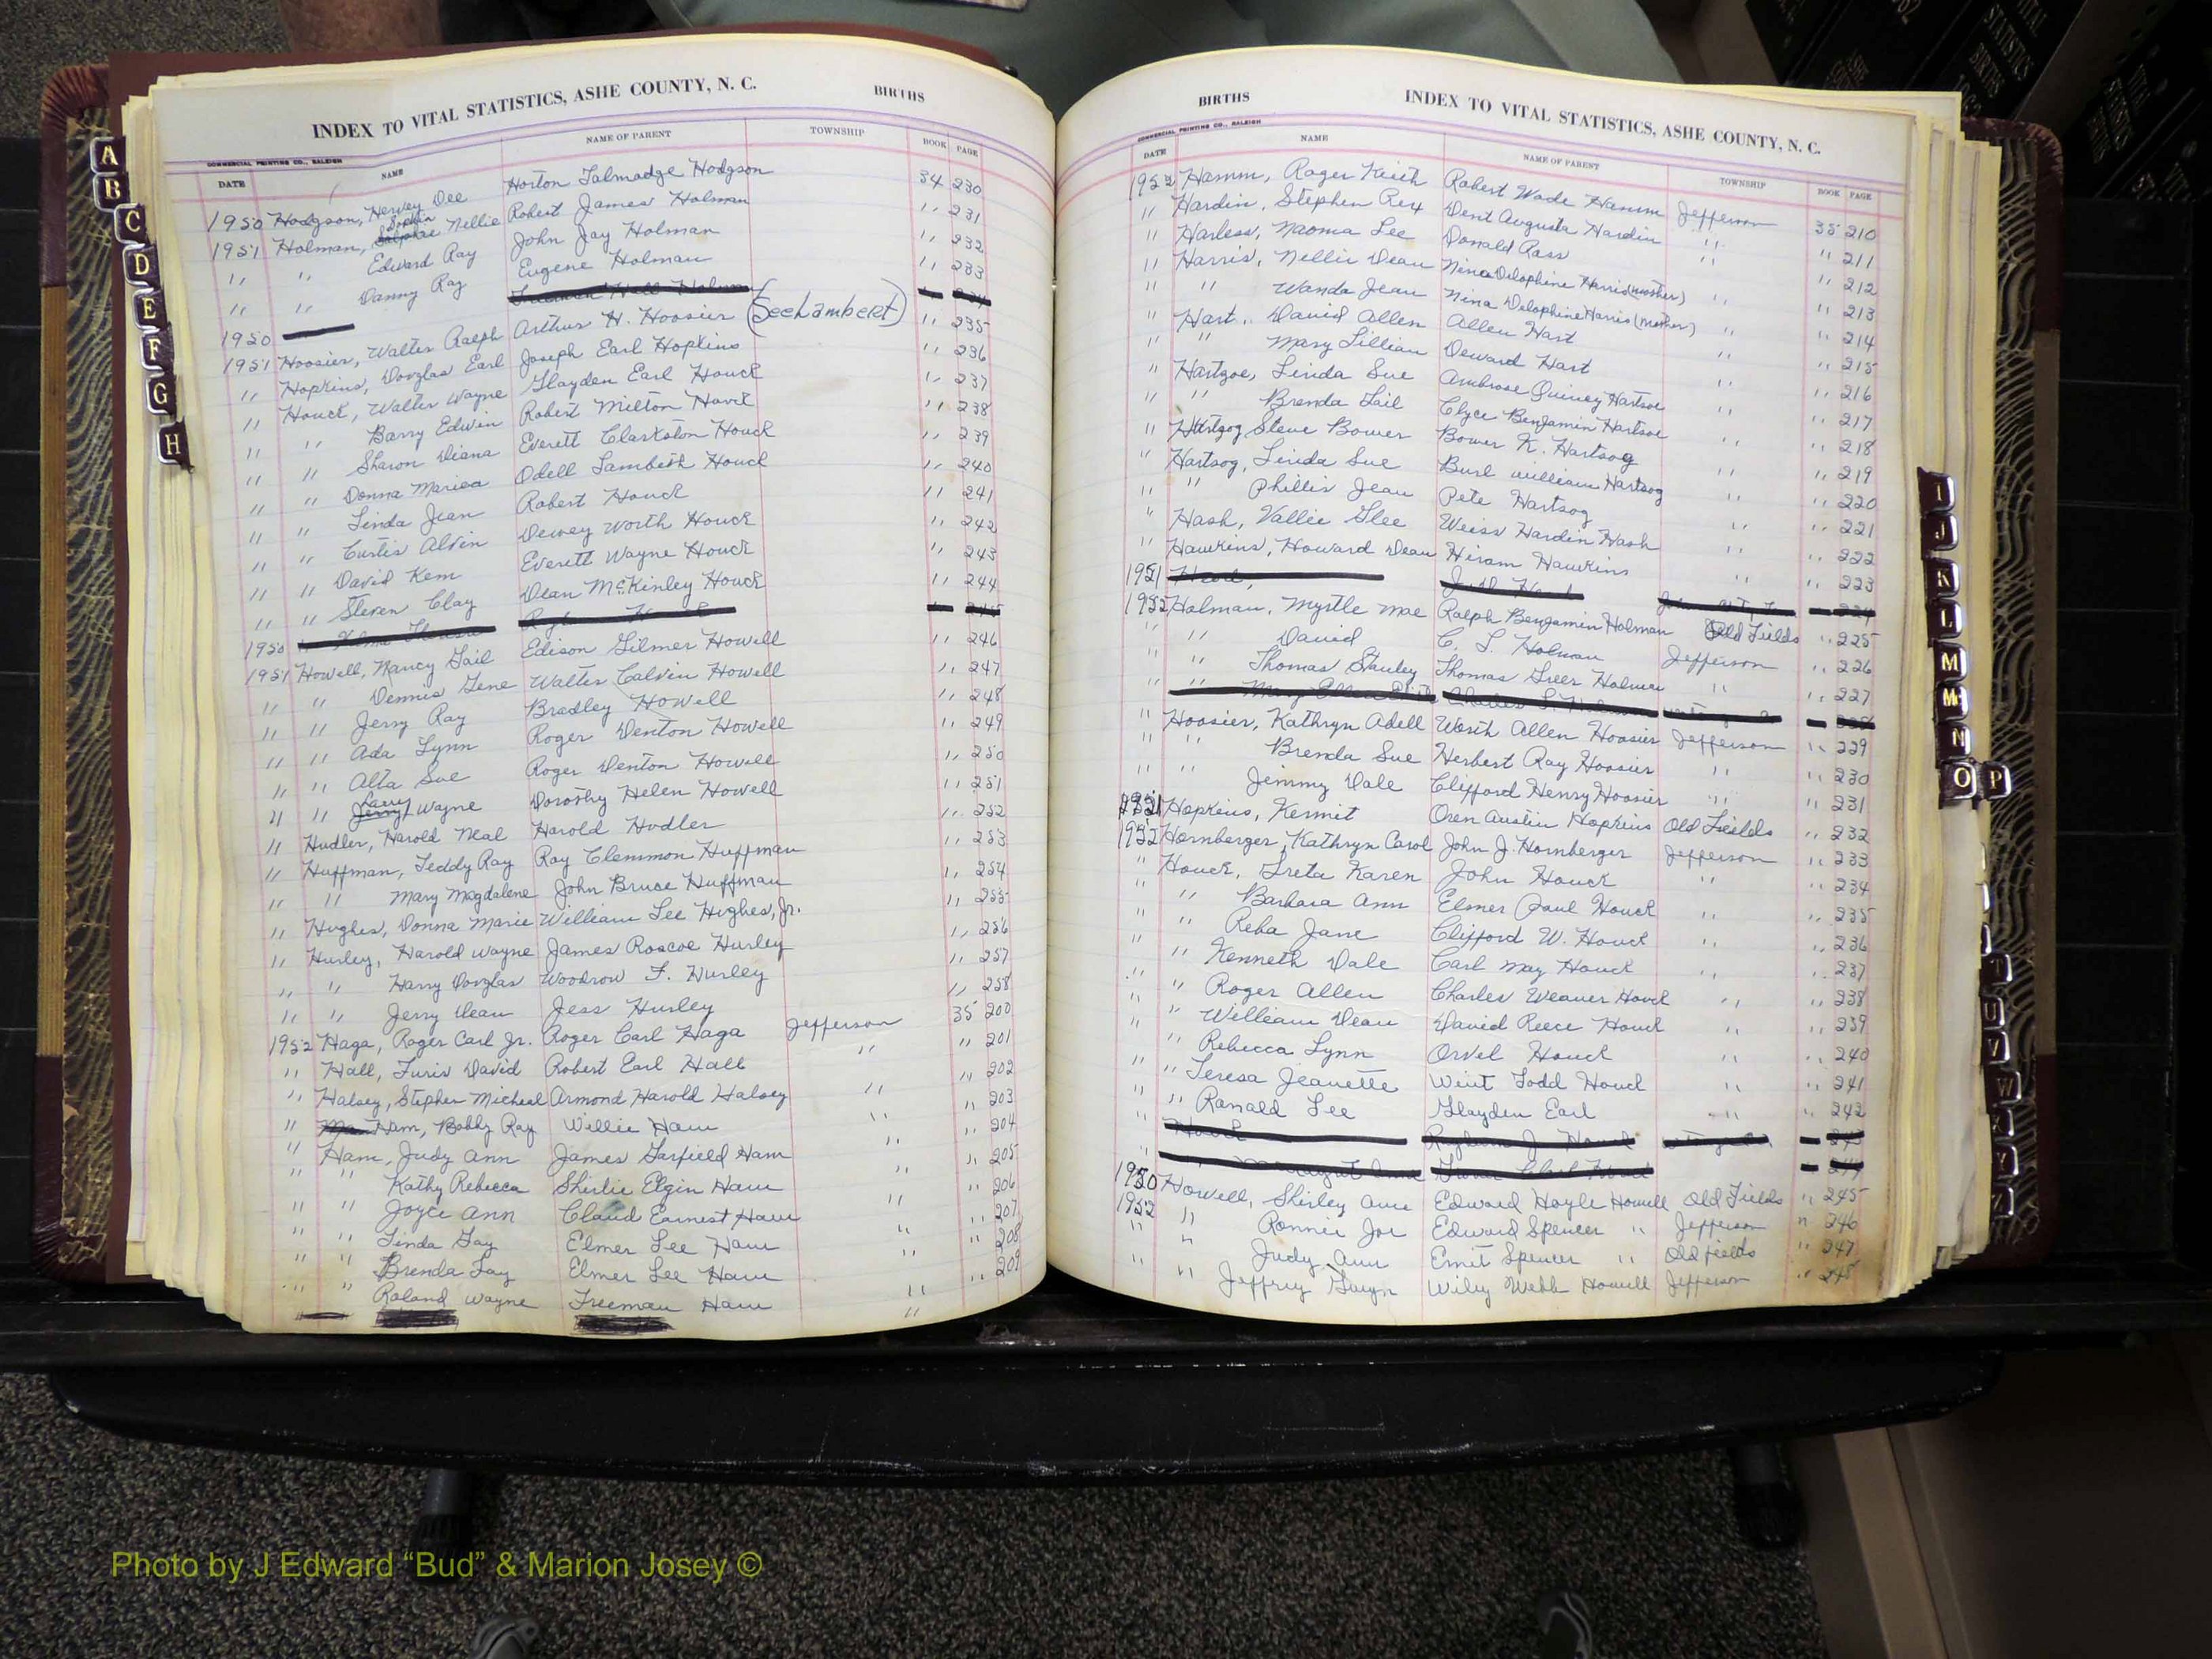 INDEX TO VITAL STATISTICS, ASHE COUNTY, N. C. BIRTHS
COMMERCIAL PRINTING CO., RALEIGH
DATE NAME NAME OF PARENT TOWNSHIP BOOK PAGE
1950 Hodgson, Hervey Dee Horton Talmadge Hodgson 34 230
1951 Holman, Nellie Robert James Holman " 231
" " Edward Ray John Jay Holman " 232
" " Danny Ray Eugene Holman " 233
1950
1951 Hoosier, Walter Ralph Arthur H. Hoosier (See Lambert) " 235
" Hopkins, Douglas Earl Joseph Earl Hopkins " 236
" Houck, Walter Wayne Glayden Earl Houck " 237
" " Barry Edwin Robert Milton Houck " 238
" " Sharon Diana Everett Clarkston Houck " 239
" " Donna Odell Lambeth Houck " 240
" " Linda Jean Robert Houck " 241
" " Curtis Alvin Dewey Worth Houck " 242
" " David Kem Everett Wayne Houck " 243
" " Steven Clay Dean McKinley Houck " 244
1950
1951 Howell, Nancy Gail Edison Gilmer Howell " 246
" " Dennis Gene Walter Calvin Howell " 247
" " Jerry Ray Bradley Howell " 248
" " Ada Lynn Roger Denton Howell " 249
" " Alta Sue Roger Denton Howell " 250
" " Larry Wayne Dorothy Helen Howell " 251
" Hudler, Harold Neal Harold Hudler " 252
" Huffman, Teddy Ray Ray Clemmon Huffman " 253
" " Mary Magdalene John Bruce Huffman " 254
" Hughes, Donna Marie William Lee Hughes, Jr. " 255
" Hurley, Harold Wayne James Roscoe Hurley " 256
" " Harry Douglas Woodrow F. Hurley " 257
" " Jerry Dean Jess Hurley " 258
1952 Haga, Roger Carl Jr. Roger Carl Haga Jefferson 35 200
" Hall, David Robert Earl Hall " " 201
" Halsey, Stephen Micheal Armond Harold Halsey " " 202
" Ham, Bobby Ray Willie Ham " " 203
" Ham, Judy Ann James Garfield Ham " " 204
" " Kathy Rebecca Shirlie Elgin Ham " " 205
" " Joyce Ann Claud Earnest Ham " " 206
" " Linda Gay Elmer Lee Ham " " 207
" " Brenda Fay Elmer Lee Ham " " 208
" " Roland Wayne Freeman Ham " " 209
BIRTHS INDEX TO VITAL STATISTICS, ASHE COUNTY, N. C.
COMMERCIAL PRINTING CO., RALEIGH
DATE NAME NAME OF PARENT TOWNSHIP BOOK PAGE
1952 Hamm, Roger Keith Robert Wade Hamm Jefferson 35 210
" Hardin, Stephen Rex Dent Augusta Hardin " " 211
" Harless, Naoma Lee Donald Ross " " 212
" Harris, Nellie Dean Nina Delophine Harris (mother) " " 213
" " Wanda Jean Nina Delophine Harris (mother) " " 214
" Hart, David Allen Allen Hart " " 215
" " Mary Lillian Deward Hart " " 216
" Hartzoe, Linda Sue Ambrose Quincy Hartsoe " " 217
" " Brenda Gail Clyce Benjamin Hartsoe " " 218
" Hartzog Steve Bower Bower K. Hartsog " " 219
" Hartsog, Linda Sue Burl William Hartsog " " 220
" " Phillis Jean Pete Hartsog " " 221
" Hash, Vallie Glee Weiss Hardin Hash " " 222
" Hawkins, Howard Dean Hiram Hawkins " " 223
1951
1952 Holman, Myrtle Mae Ralph Benjamin Holman Old Fields " 225
" " David C. L. Holman Jefferson " 226
" " Thomas Stanley Thomas Greer Holman " " 227
" Hoosier, Kathryn Adell Worth Allen Hoosier Jefferson " 229
" " Brenda Sue Herbert Ray Hoosier " " 230
" " Jimmy Dale Clifford Henry Hoosier " " 231
1951 Hopkins, Kermit Oren Austin Hopkins Old Fields " 232
1952 Hornberger, Kathryn Carol John J. Hornberger Jefferson " 233
" Houck, Treta Karen John Houck " " 234
" " Barbara Ann Elmer Paul Houck " 235
" " Reba Jane Clifford W. Houck " " 236
" " Kenneth Dale Carl May Houck " " 237
" " Roger Allen Charles Weaver Houck " " 238
" " William Dean David Reece Houck " " 239
" " Rebecca Lynn Orvel Houck " " 240
" " Teresa Jeanette Wint Todd Houck " " 241
" " Ronald Lee Glayden Earl " " 242
1950 Howell, Shirley Ann Edward Hoyle Howell Old Fields " 245
1952 " Ronnie Joe Edward Spencer " Jefferson " 246
" " Judy Ann Emit Spencer " Old fields " 247
" " Jeffrey Gwyn Wiley Webb Howell Jefferson " 248
A
B
C
D
E
F
G
H
I
J
K
L
M
Mc
N
O
P
T
U
V
W
VITAL STATISTICS BIRTHS
Photo by J Edward “Bud” & Marion Josey ©